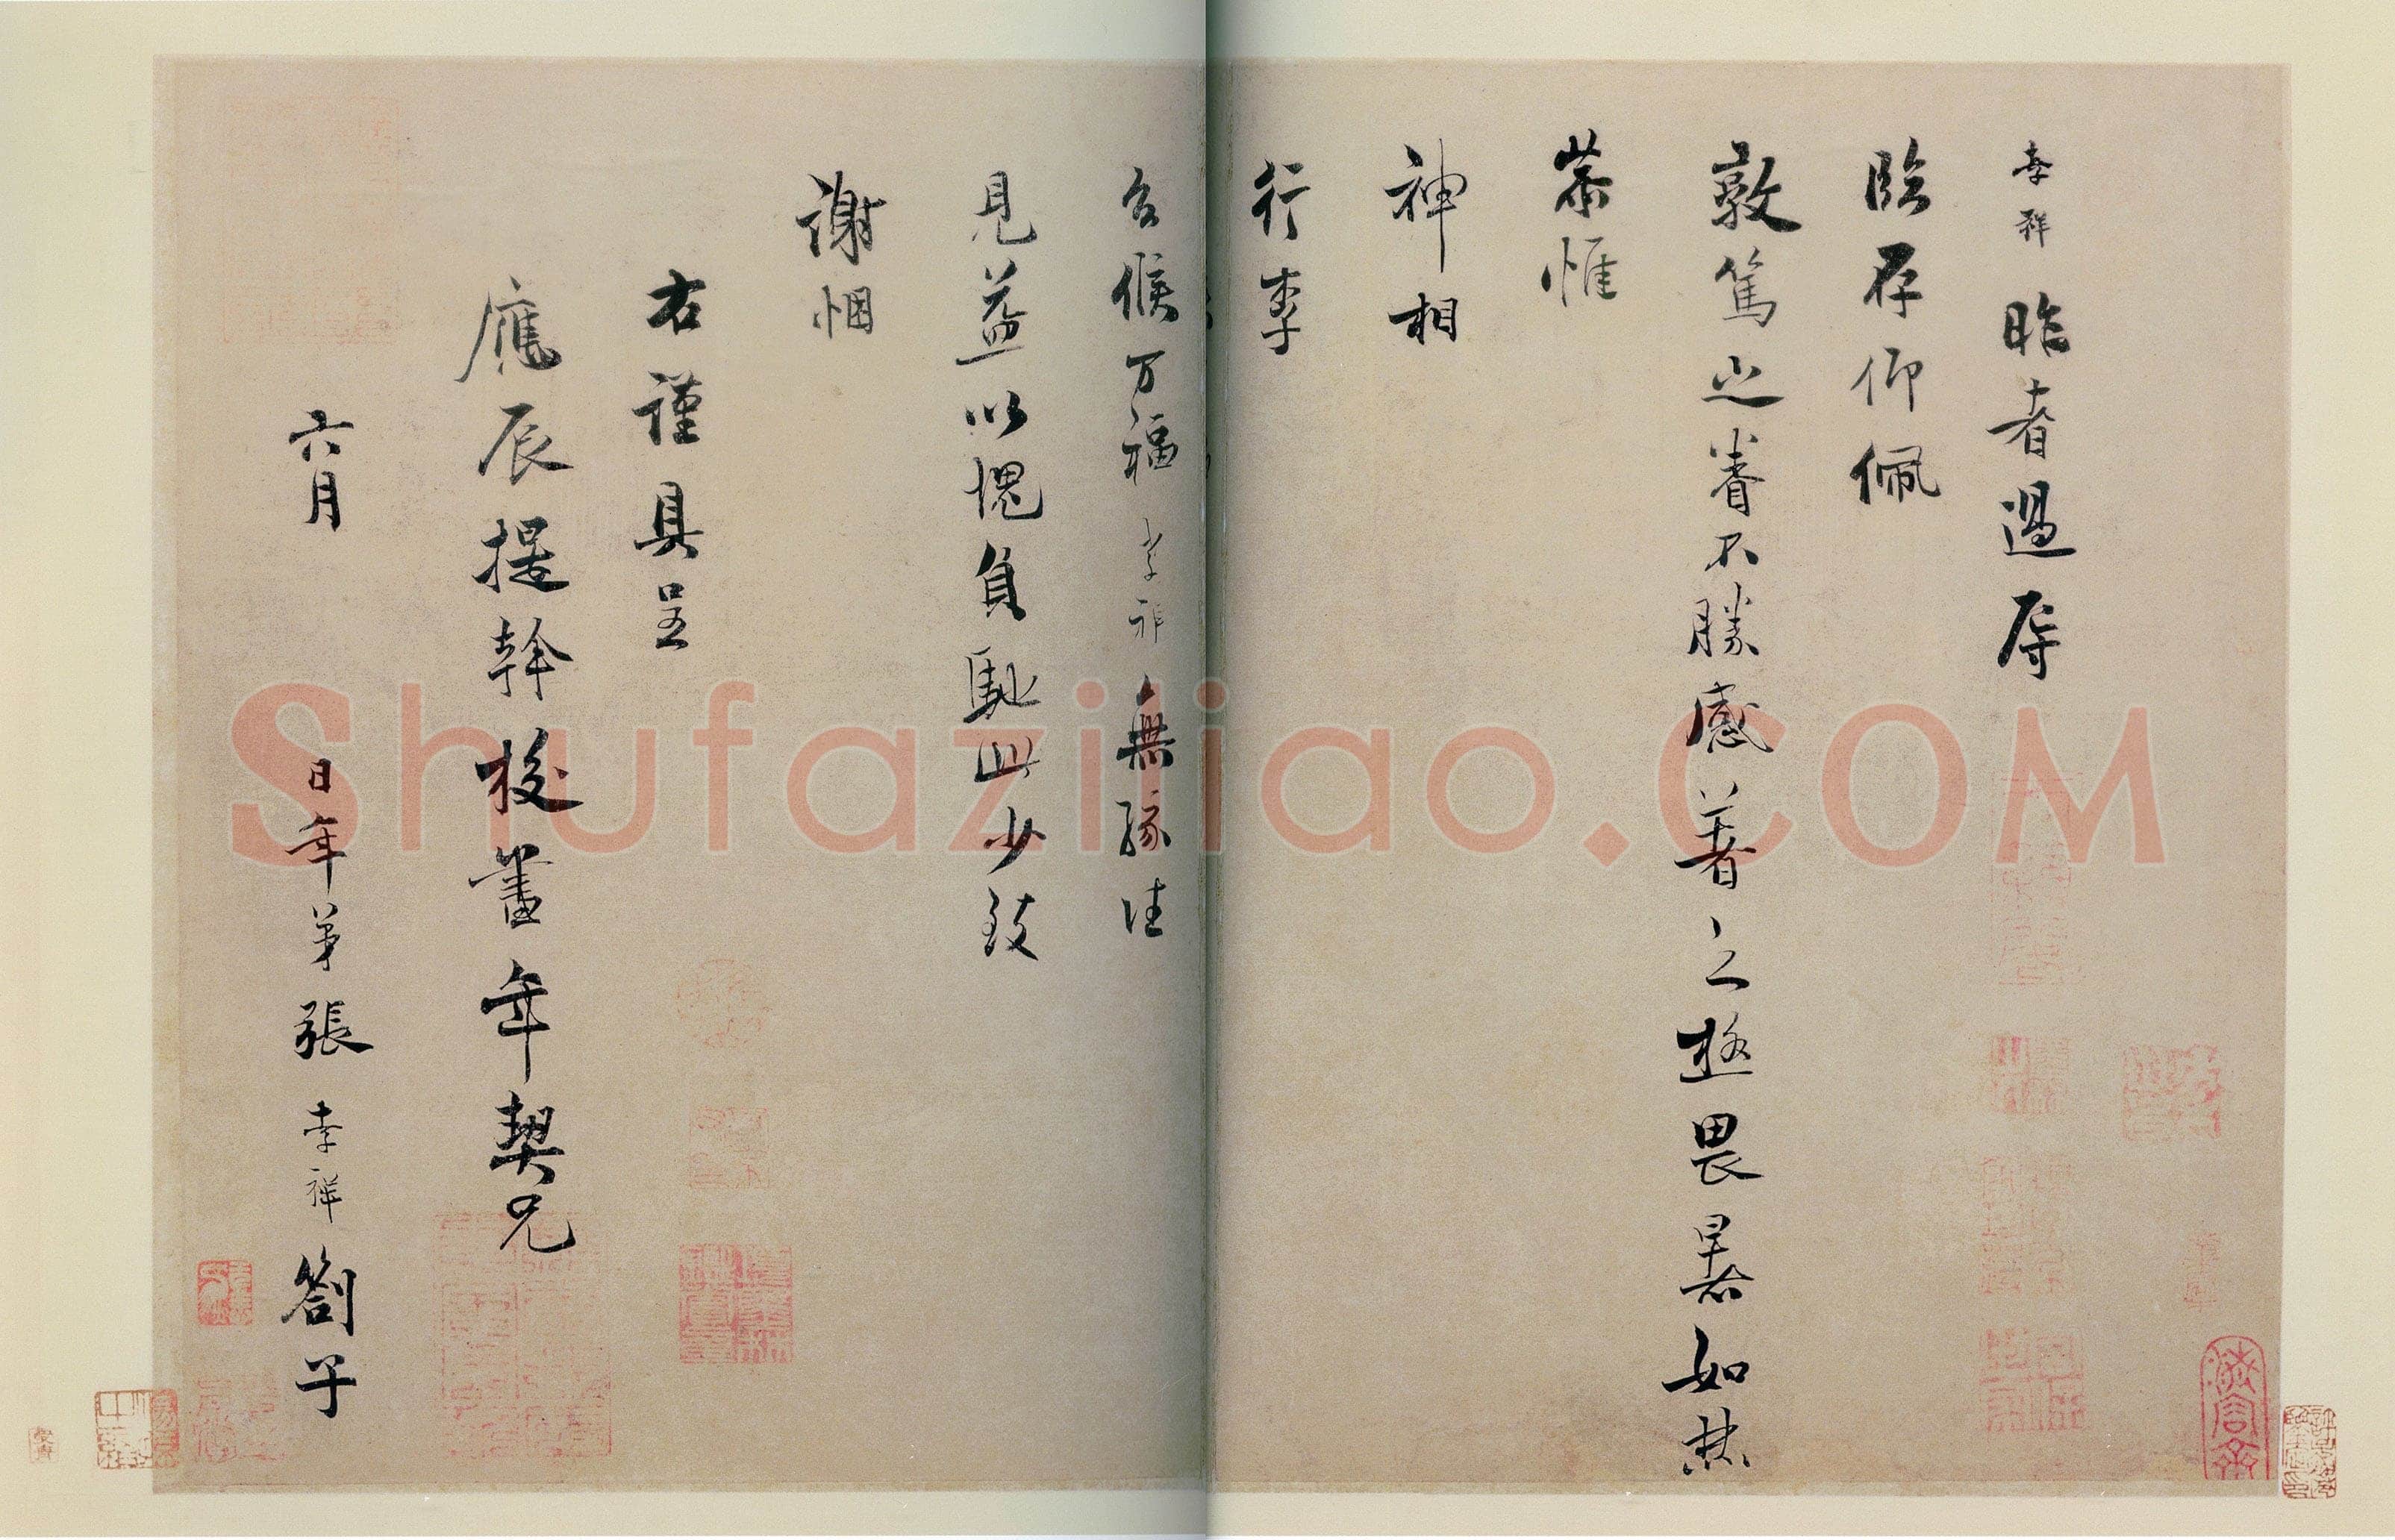 孝祥昨者過辱
臨存仰佩
敦篤之眷不勝感著之極畏暑如焚
恭惟
神相
行李
台候万福孝祥無緣往
見益以愧負馳此少致
謝悃
右謹具呈
應辰提幹校書年契兄
六月 日年弟張孝祥劄子
Shufaziliao.COM